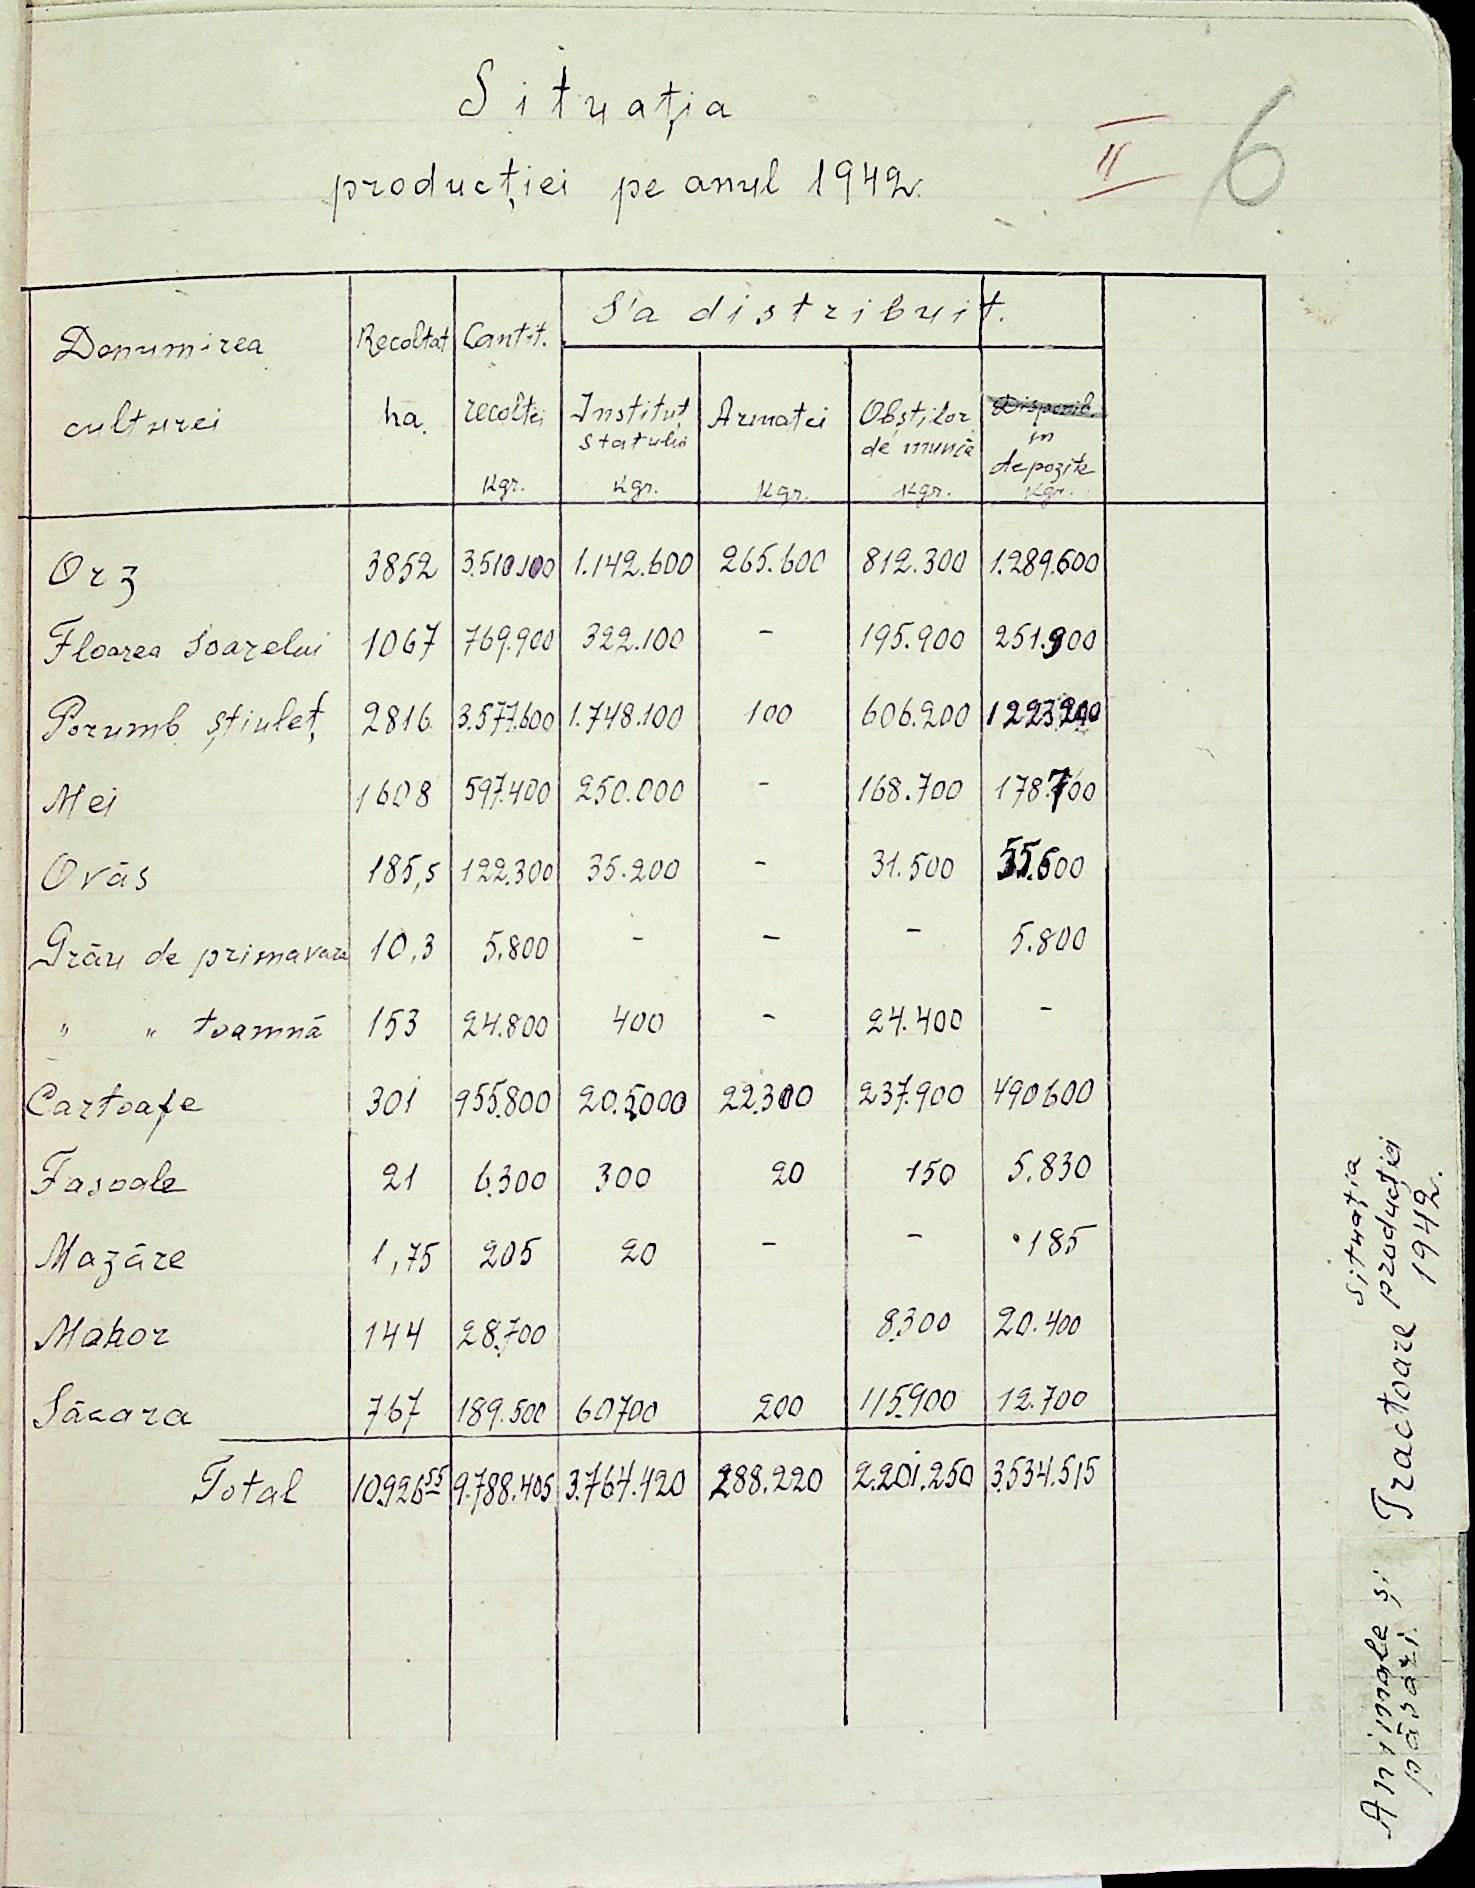 Situația
producției pe anul 1942.
II 6
Denumirea culturei | Recoltat ha. | Cantit. recoltei Kgr. | S'a distribuit.
Institut. Statului Kgr. | Armatei Kgr. | Obștilor de muncă Kgr. | Disponib. in depozite Kgr.
Orz 3852 3.510.100 1.142.600 265.600 812.300 1.289.600
Floarea Soarelui 1067 769.900 322.100 - 195.900 251.900
Porumb știuleț 2816 3.577.600 1.748.100 100 606.200 1223200
Mei 1608 597.400 250.000 - 168.700 178.700
Ovăs 185,5 122.300 35.200 - 31.500 55.600
Grâu de primavara 10,3 5.800 - - - 5.800
" " toamnă 153 24.800 400 - 24.400 -
Cartoafe 301 955.800 205000 22.300 237.900 490600
Fasoale 21 6.300 300 20 150 5.830
Mazăre 1,75 205 20 - - 185
Mahor 144 28.700 8.300 20.400
Săcara 767 189.500 60700 200 115.900 12.700
Total 10.926 55 9.788.405 3.764.420 288.220 2.201.250 3.534.515
Situația
producției
1942.
Tractoare
Animale și
păsări.